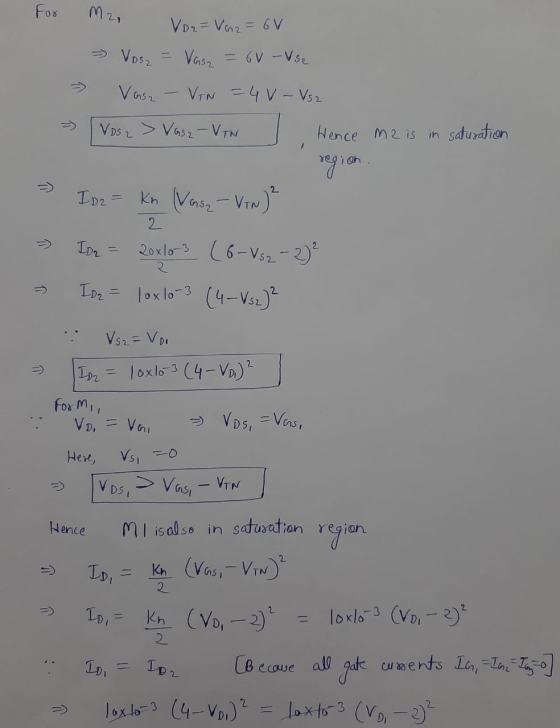 For M2, V_D2 = V_G2 = 6V
⇒ V_DS2 = V_GS2 = 6V - V_S2
⇒ V_GS2 - V_TN = 4V - V_S2
⇒ V_DS2 > V_GS2 - V_TN , Hence M2 is in saturation region.
⇒ I_D2 = Kn/2 (V_GS2 - V_TN)^2
⇒ I_D2 = 20x10^-3/2 (6 - V_S2 - 2)^2
⇒ I_D2 = 10x10^-3 (4 - V_S2)^2
∵ V_S2 = V_D1
⇒ I_D2 = 10x10^-3 (4 - V_D1)^2
For M1,
∵ V_D1 = V_G1 ⇒ V_DS1 = V_GS1
Here, V_S1 = 0
⇒ V_DS1 > V_GS1 - V_TN
Hence M1 is also in saturation region
⇒ I_D1 = Kn/2 (V_GS1 - V_TN)^2
⇒ I_D1 = Kn/2 (V_D1 - 2)^2 = 10x10^-3 (V_D1 - 2)^2
∵ I_D1 = I_D2 [Because all gate currents I_G1 = I_G2 = I_G3 = 0]
⇒ 10x10^-3 (4 - V_D1)^2 = 10x10^-3 (V_D1 - 2)^2